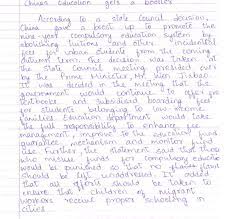 China's education gets a booster
According to a state council decision,
China gave a boost up to promote the
nine-year compulsory education system by
abolishing tuitions and other "incidental
fees for urban students from the coming
autumn term. The decision was taken at
the State Council meeting presided over
by the Prime Minister, Mr. Wen Jiabao.
It was decided in the meeting that the
government would continue to offer free
textbooks and subsidised boarding fees
to students belonging to low-income
families. Education department would take
the full responsibility to enhance fee
management, improve the education fund
guarantee mechanism and monitor fund
use. Further the statement said that those
who misuse funds for compulsory education
would be punished so that no places
should be left unaddressed. It added
that all efforts should be taken to
ensure that children of migrant
workers receive proper schooling in
cities